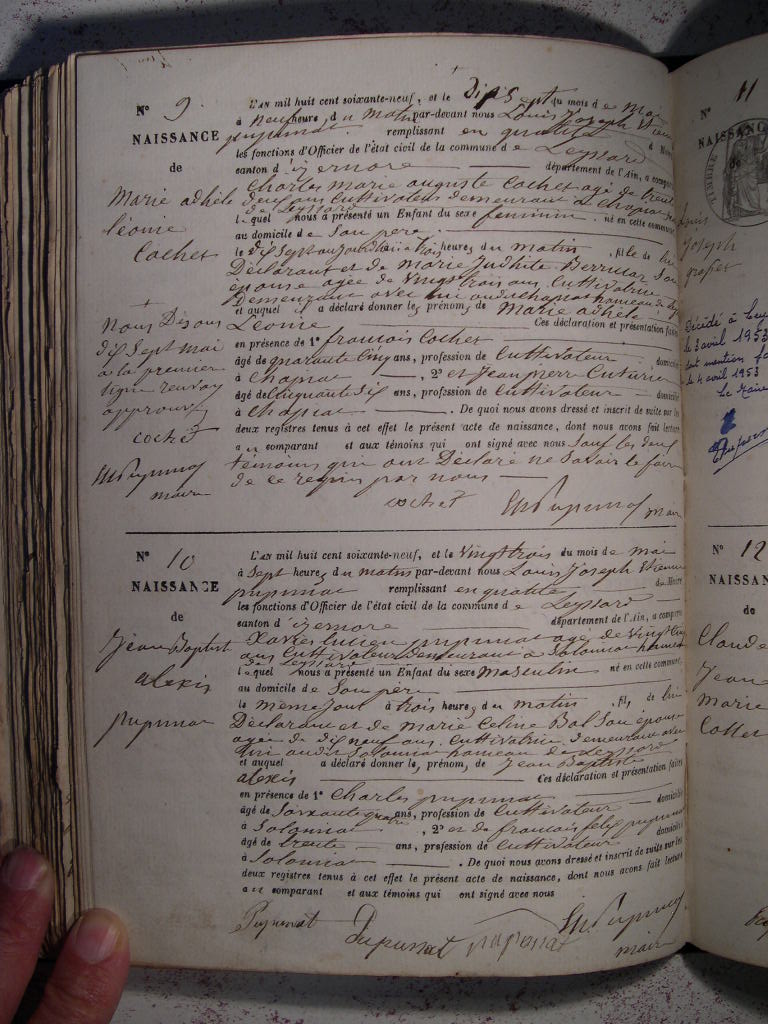 N° 9.
NAISSANCE
de
Marie adhèle
léonie
Cochet
L'AN mil huit cent soixante-neuf, et le Dipsept du mois de Mai
à neuf heures du matin par-devant nous Louis Joseph
pupunat remplissant en qualité
les fonctions d'Officier de l'état civil de la commune de Leyssard
canton d'izernore département de l'Ain, a comparu
Charles marie auguste Cochet agé de trente
deux ans Cultivateur demeurant à Chapiat
de Leyssard
lequel nous a présenté un Enfant du sexe feminin né en cette commune
au domicile de Son père
le dis sept aujourdhui à trois heures du matin, fille de lui
Déclarant et de marie Judhite Berruaz Son
épouse agée de Vingt trois ans Cultivatrice
Demeurant avec lui audit chapiat hameau de
et auquel a déclaré donner les prénoms de Marie adhèle
Léonie Ces déclaration et présentation faites
en présence de 1° francois Cochet
âgé de quarante Cinq ans, profession de Cultivateur domicilié
à Chapiat, 2° et Jean pierre Cuturier
âgé de Cinquante dix ans, profession de Cultivateur domicilié
à Chapiat. De quoi nous avons dressé et inscrit de suite sur les
deux registres tenus à cet effet le présent acte de naissance, dont nous avons fait lecture
au comparant et aux témoins qui ont signé avec nous Sauf les deux
témoins qui ont Déclaré ne Savoir le faire
de ce requis par nous
cochet Pupunat maire
Nous Disons
dis sept mai
a la premier
ligne renvoy
approuvé
cochet
Pupunat
maire
N° 10
NAISSANCE
de
Jean Baptiste
alexis
pupunat
L'AN mil huit cent soixante-neuf, et le Vingt trois du mois de mai
à Sept heures du matin par-devant nous Louis Joseph Etienne
pupunat remplissant en qualité de Maire
les fonctions d'Officier de l'état civil de la commune de Leyssard
canton d'izernore département de l'Ain, a comparu
Xavier lucien pupunat agé de Vingt Cinq
ans Cultivateur demeurant à Solomiat hameau
de Leyssard
lequel nous a présenté un Enfant du sexe masculin né en cette commune,
au domicile de Son père
le même jour à trois heures du matin, fils de lui
Déclarant et de marie Celine Bal Son épouse
agée de dix neuf ans. Cultivatrice demeurant avec
lui audit Solomiat hameau de Leyssard
et auquel a déclaré donner les prénoms de Jean Baptiste
alexis Ces déclaration et présentation faites
en présence de 1° Charles pupunat
âgé de Soixante quatre ans, profession de Cultivateur domicilié
à Solomiat, 2° et de francois felix pupunat
âgé de trente ans, profession de Cultivateur domicilié
à Solomiat. De quoi nous avons dressé et inscrit de suite sur les
deux registres tenus à cet effet le présent acte de naissance, dont nous avons fait lecture
au comparant et aux témoins qui ont signé avec nous
Pupunat Pupunat pupunat Pupunat
maire
N° 11
NAISSANCE
de
TIMBRE
Joseph
Décédé à
le 3 avril 1953
mention
le 4 avril 1953
le Maire
N° 12
NAISSANCE
de
Claude
Jean
Marie